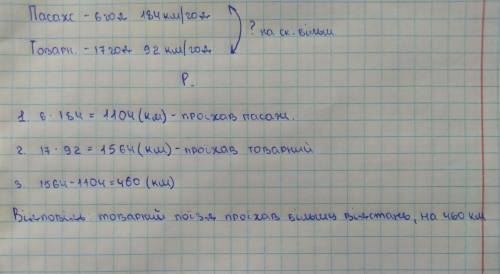 Пасаж - 6 год 184 км/год
? на ск. більш
Товарн. - 17 год 92 км/год
Р.
1. 6 · 184 = 1104 (км) - проїхав пасаж.
2. 17 · 92 = 1564 (км) - проїхав товарний
3. 1564 - 1104 = 460 (км)
Відповідь: товарний поїзд проїхав більшу відстань, на 460 км